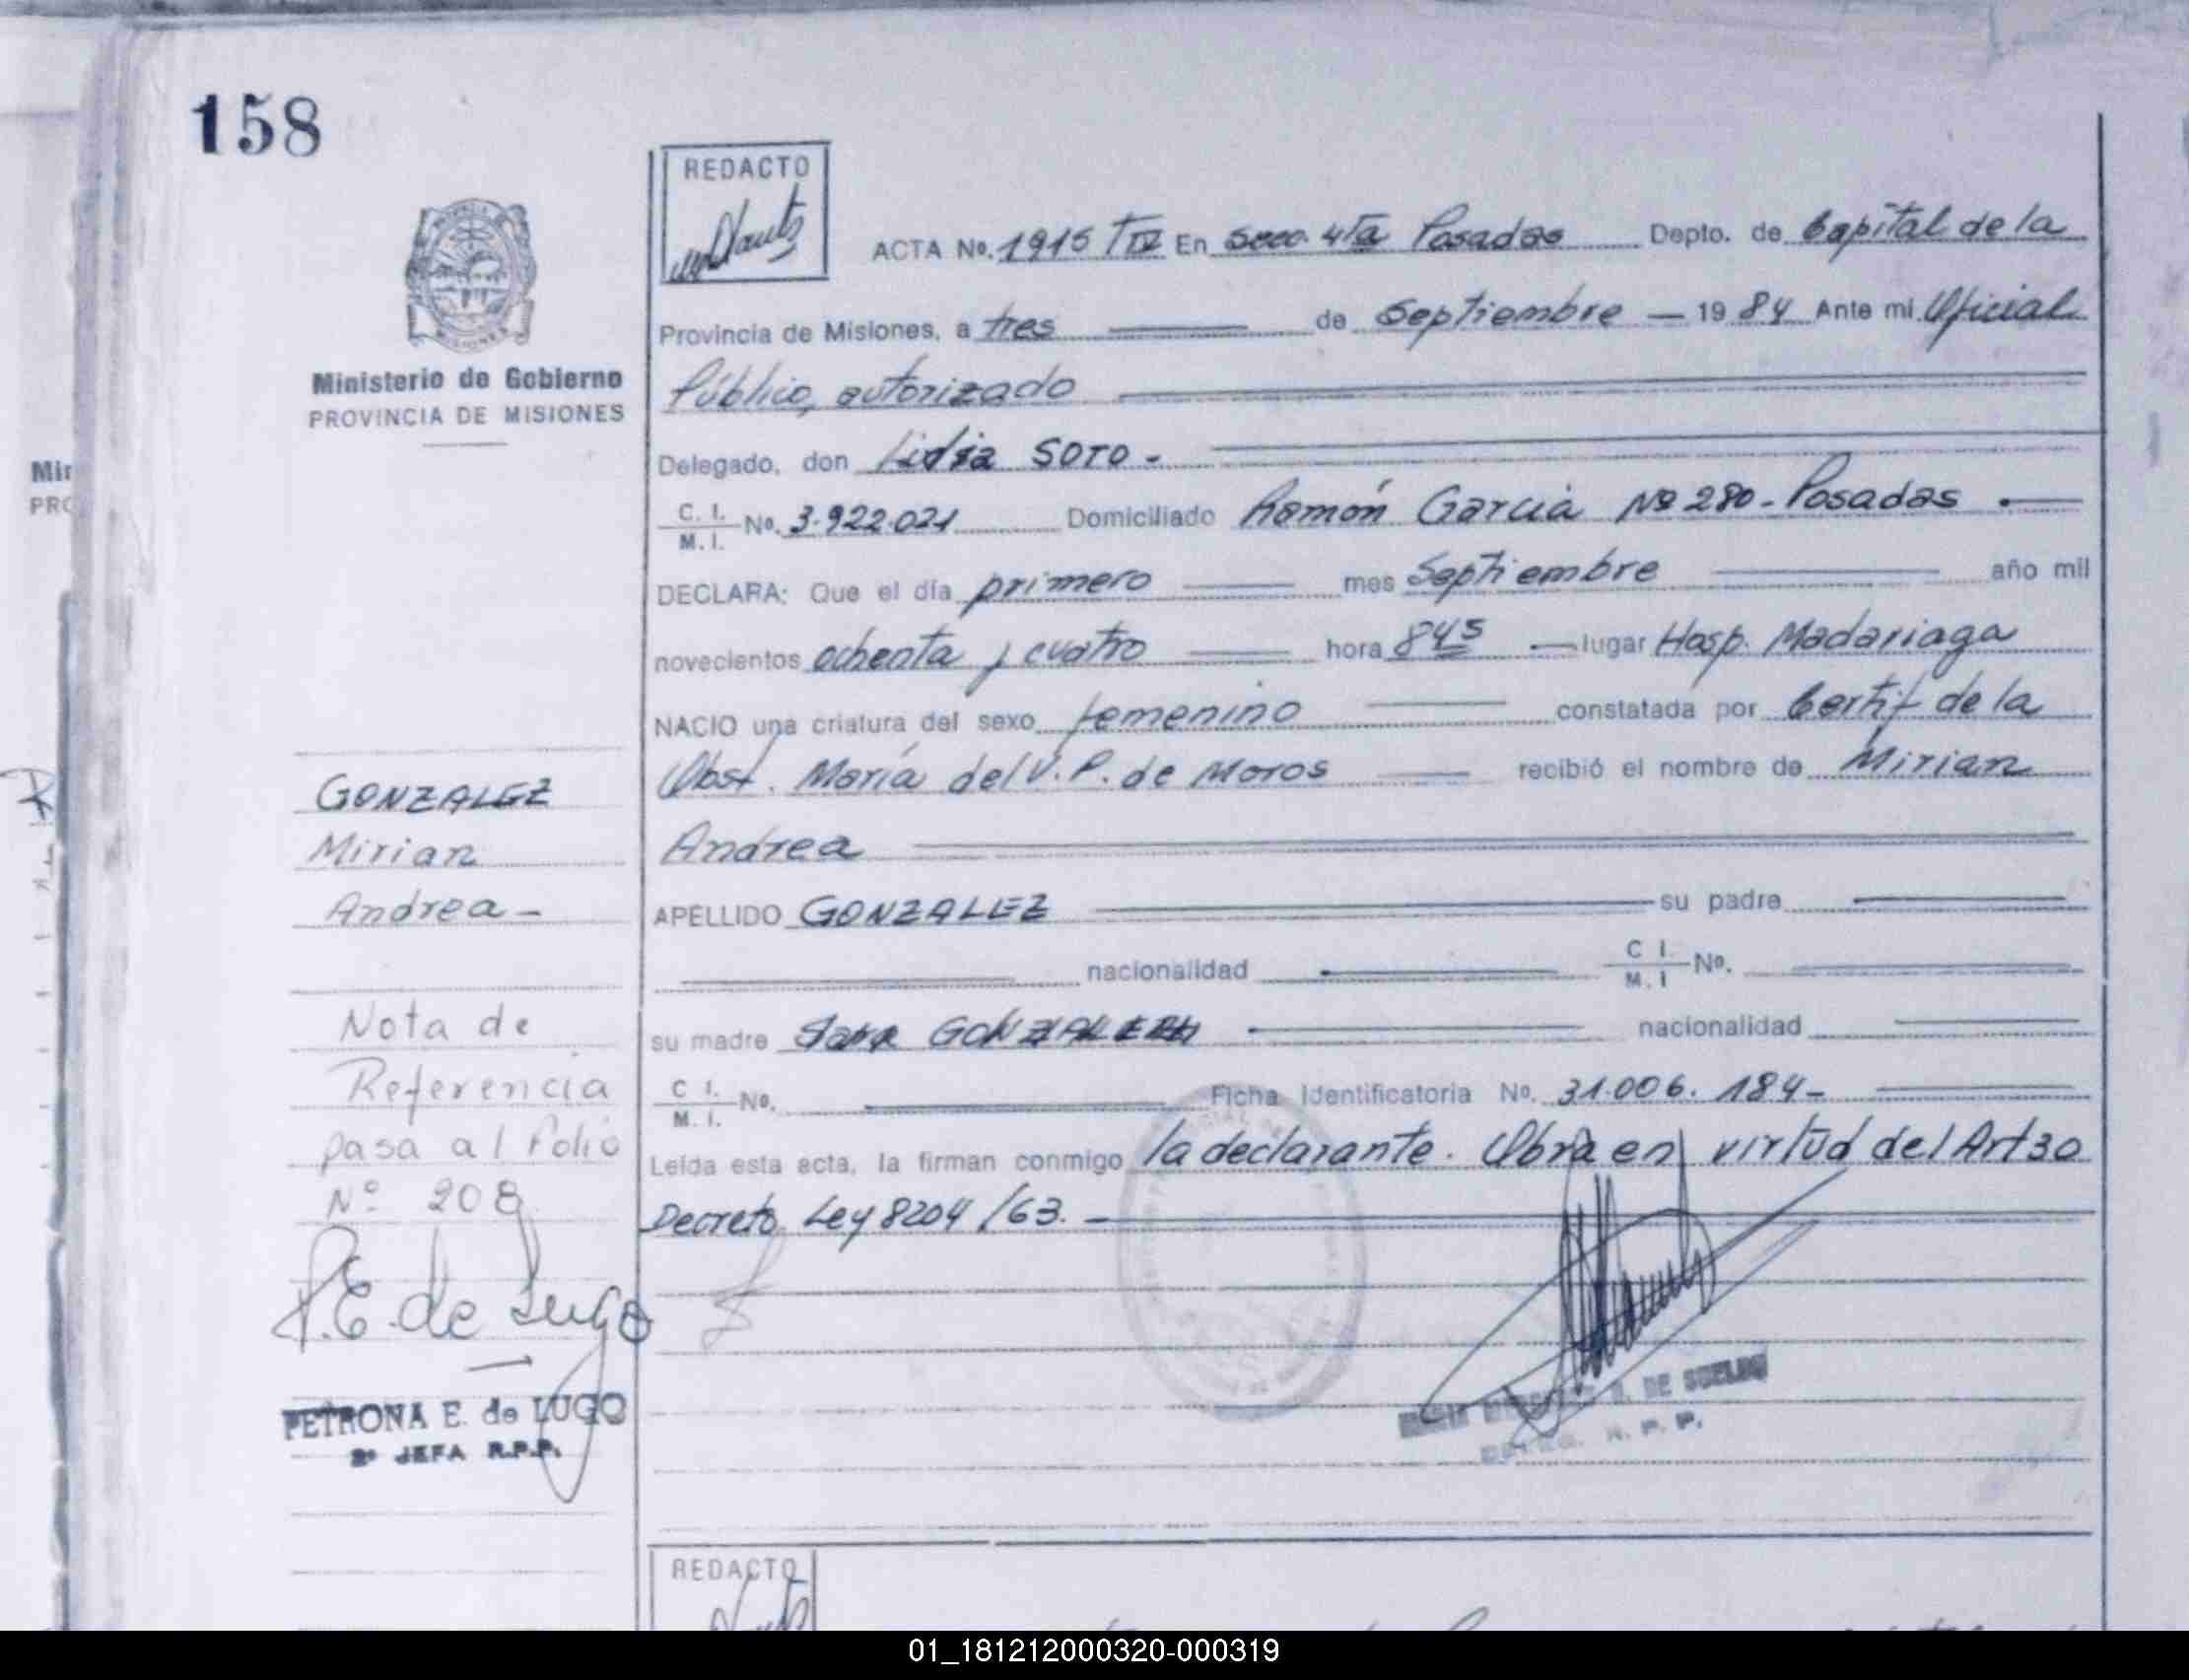 158
REDACTO
ACTA No. 1915 TIV En Secc. 4ta Posadas Depto. de Capital de la
Provincia de Misiones, a tres de Septiembre 19 84 Ante mi Oficial
Público, autorizado
Delegado, don Lidia SOTO -
C. I. M. I. No. 3.922.021 Domiciliado Ramón Garcia Nº 280 - Posadas
DECLARA: Que el día primero mes Septiembre año mil
novecientos ochenta y cuatro hora 845 lugar Hosp. Madariaga
NACIO una criatura del sexo femenino constatada por Certif de la
Obst. María del V. P. de Moros recibió el nombre de Mirian
Andrea
APELLIDO GONZALEZ su padre
nacionalidad C I. M. I No.
su madre GONZALEZ nacionalidad
C I. M. I. No. Ficha Identificatoria No. 31.006.184-
Leída esta acta, la firman conmigo la declarante. Obra en virtud del Art 30
Decreto Ley 8204/63. -
Ministerio de Gobierno
PROVINCIA DE MISIONES
GONZALEZ
Mirian
Andrea -
Nota de
Referencia
pasa al Folio
Nº 208
P.E. de Lugo
PETRONA E. de LUGO
2º JEFA R.P.P.
DE SUELDO
R. P. P.
Min
PRO
REDACTO
01_181212000320-000319